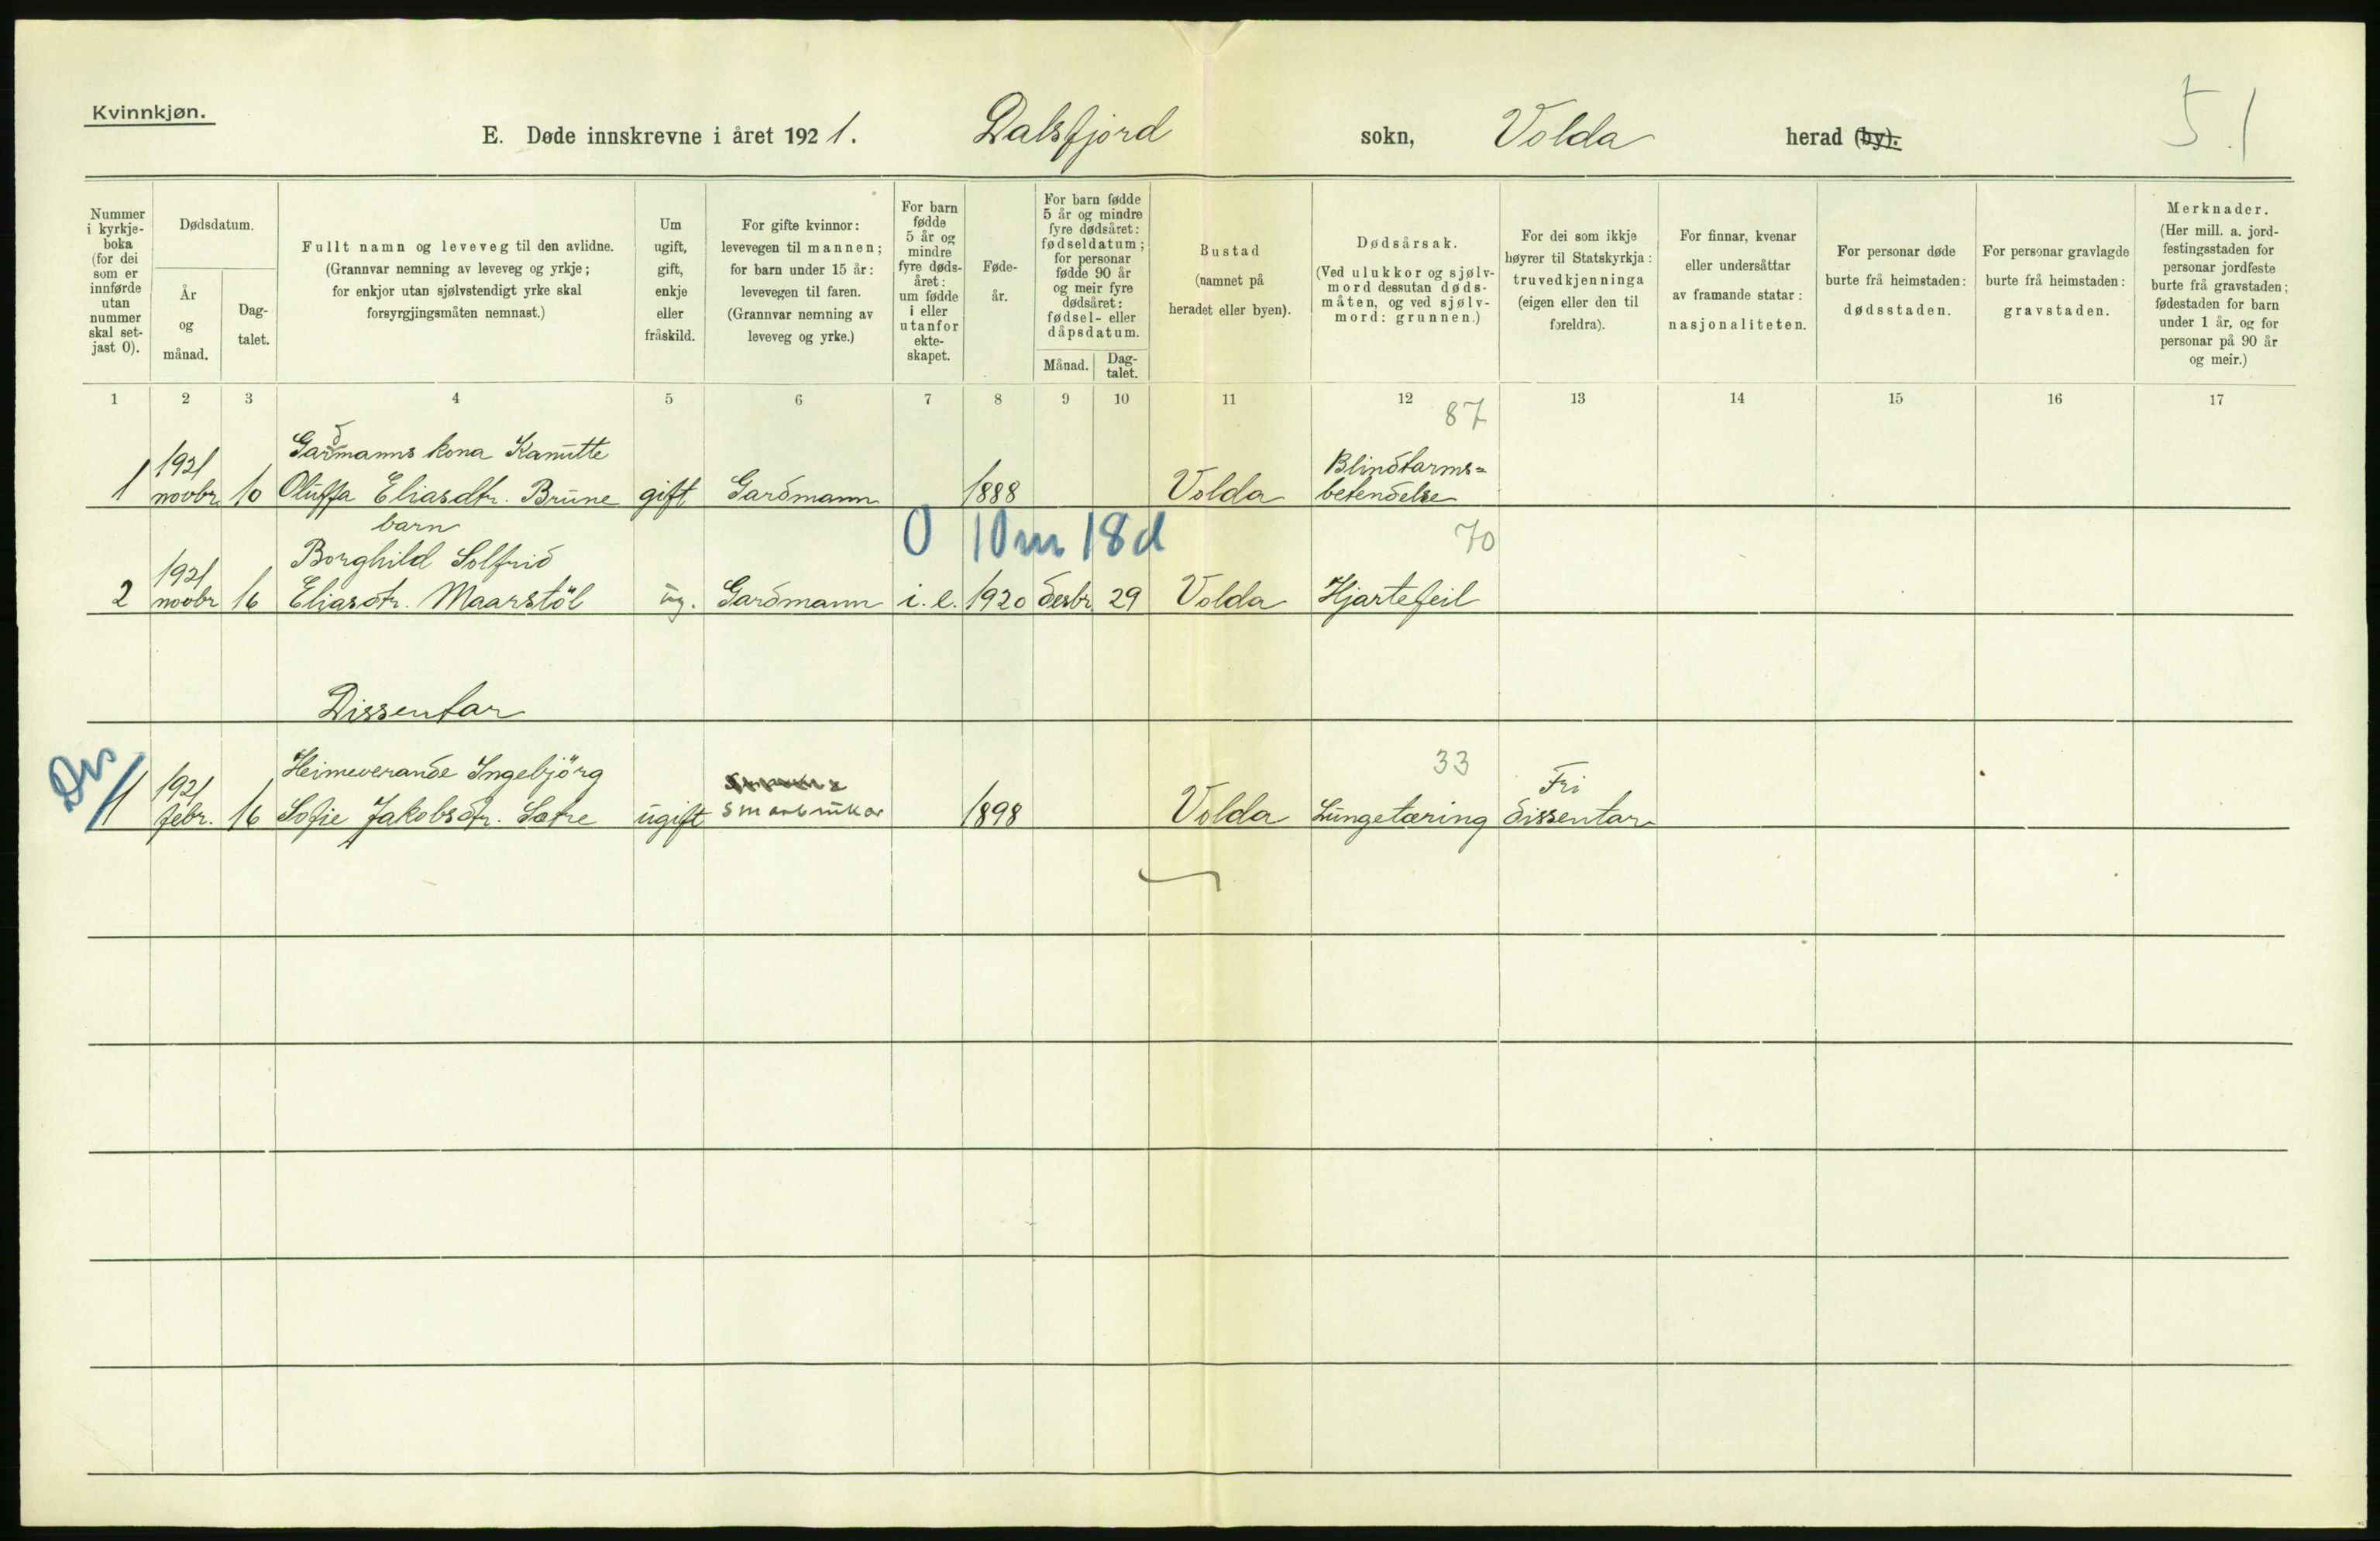 Kvinnkjøn.
E. Døde innskrevne i året 1921. Dalsfjord sokn, Volda herad (by).
51
Nummer i kyrkje-boka (for dei som er innførde utan nummer skal set-jast 0).
Dødsdatum.
År og månad.
Dag-talet.
Fullt namn og leveveg til den avlidne. (Grannvar nemning av leveveg og yrkje; for enkjor utan sjølvstendigt yrke skal forsyrgjingsmåten nemnast.)
Um ugift, gift, enkje eller fråskild.
For gifte kvinnor: levevegen til mannen; for barn under 15 år: levevegen til faren. (Grannvar nemning av leveveg og yrke.)
For barn fødde 5 år og mindre fyre døds-året: um fødde i eller utanfor ekte-skapet.
Føde-år.
For barn fødde 5 år og mindre fyre dødsåret: fødseldatum; for personar fødde 90 år og meir fyre dødsåret: fødsel- eller dåpsdatum.
Månad.
Dag-talet.
Bustad (namnet på heradet eller byen).
Dødsårsak. (Ved ulukkor og sjølv-mord dessutan døds-måten, og ved sjølv-mord: grunnen.)
For dei som ikkje høyrer til Statskyrkja: truvedkjenninga (eigen eller den til foreldra).
For finnar, kvenar eller undersåttar av framande statar: nasjonaliteten.
For personar døde burte frå heimstaden: dødsstaden.
For personar gravlagde burte frå heimstaden: gravstaden.
Merknader. (Her mill. a. jord-festingsstaden for personar jordfeste burte frå gravstaden; fødestaden for barn under 1 år, og for personar på 90 år og meir.)
1 2 3 4 5 6 7 8 9 10 11 12 13 14 15 16 17
87
1921 Gardmanns kona Kanutte Blindtarms=
1 novbr. 10 Oluffa Eliasdtr. Brune gift Gardmann 1888 Volda betendelse
barn 0 10m 18d 70
1921 Borghild Solfrid
2 novbr 16 Eliasdtr. Maarstöl ug. Gardmann i.e. 1920 desbr. 29 Volda Hjartefeil
Dissentar
Dis 1921 Heimeverande Ingebjörg 33 Fri
1 febr. 16 Sofie Jakobsdtr. Sætre ugift Smaabrukar 1898 Volda Lungetæring dissentar